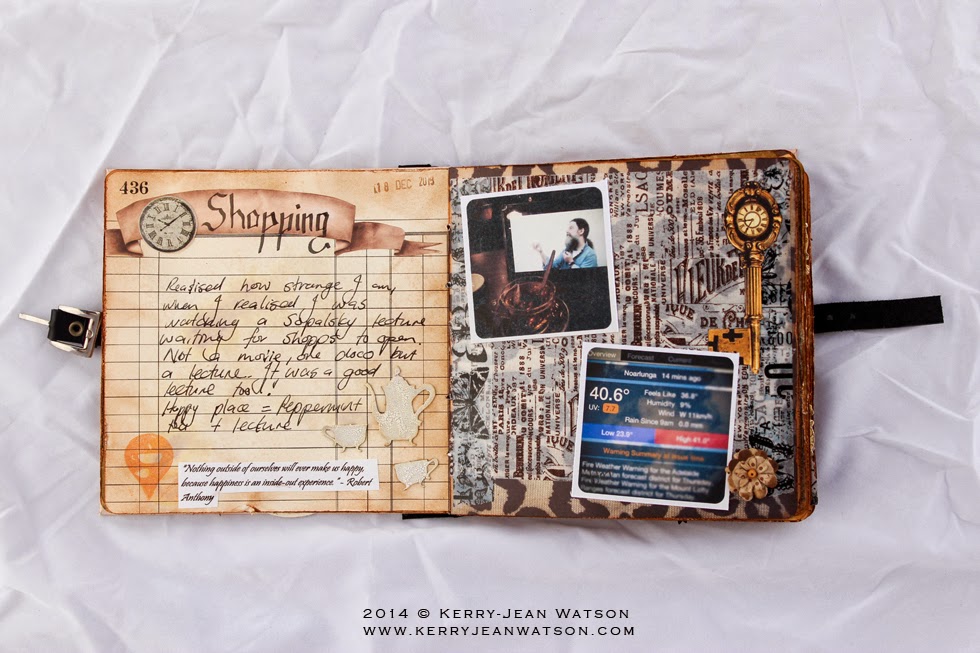 436
18 DEC 2013
Shopping
Realised how strange I am
when I realised I was
watching a Sapalsky lecture
waiting for shopps to open.
Not a movie, one doco but
a lecture... It was a good
lecture too!
Happy place = Peppermint
Tea + lecture
"Nothing outside of ourselves will ever make us happy,
because happiness is an inside-out experience." - Robert
Anthony
VIEUX
DE
Overview Forecast Current
Noarlunga 14 mins ago
40.6° Feels Like 36.8°
UV: 7.7 Humidity 9%
Wind W 11km/h
Rain Since 9am 0.0 mm
Low 23.9° High 41.0°
Warning Summary at issue time
Fire Weather Warning for the Adelaide
Metropolitan forecast district for Thursday.
Fire Weather Warning for the Mount Lofty
forecast district for Thursday.
2014 © KERRY-JEAN WATSON
WWW.KERRYJEANWATSON.COM